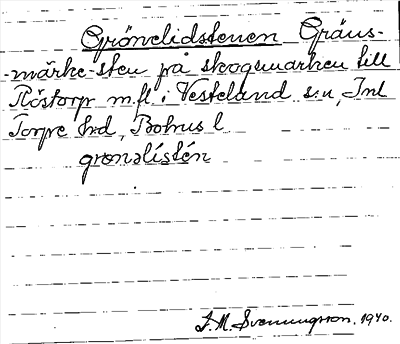 Grönelidstenen Gräns-
-märke-sten på skogsmarken till
Röstorp m.fl. i Vesteland s:n, Inl
Torpe hd, Bohus l
gronəlistén
J. M. Svenningsson. 1940.